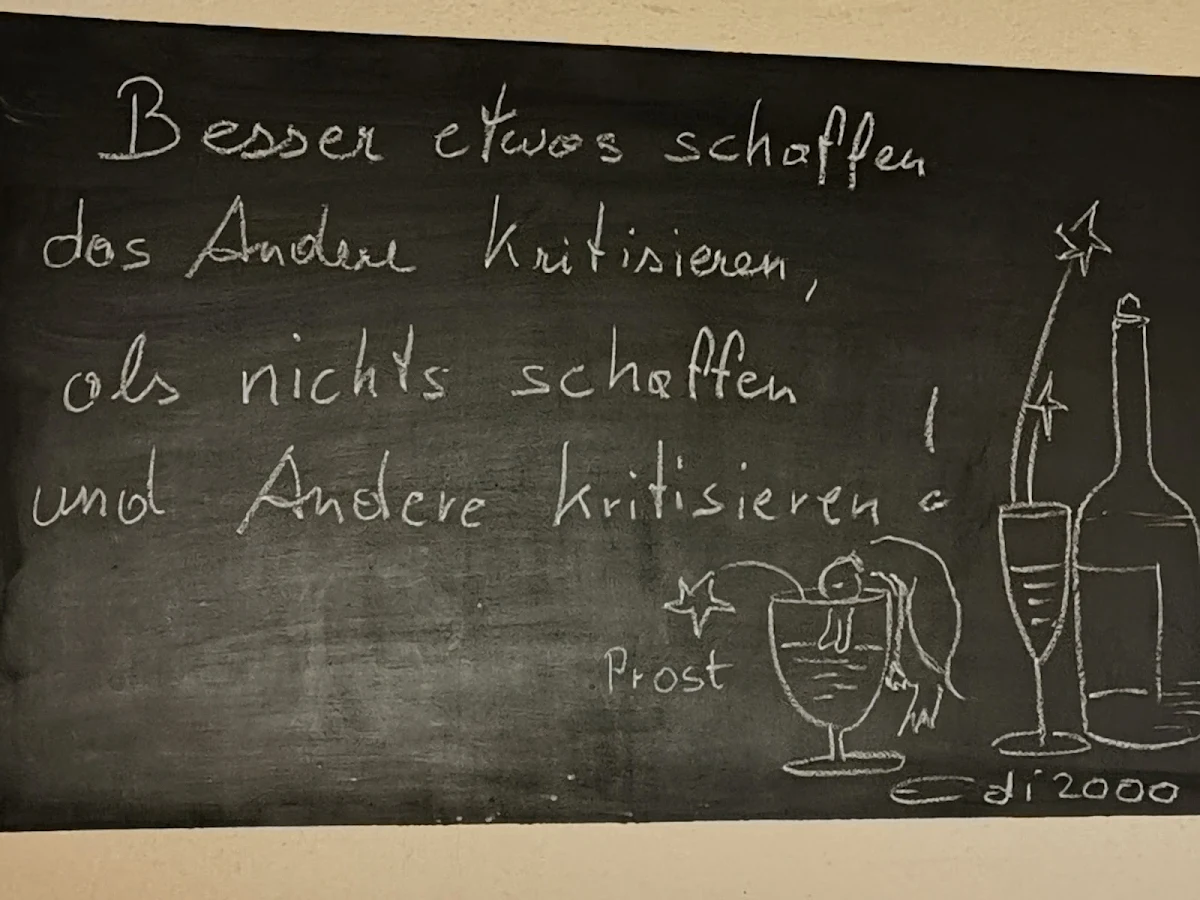 Besser etwas schaffen
das Andere kritisieren,
als nichts schaffen
und Andere kritisieren!
Prost
Edi 2000